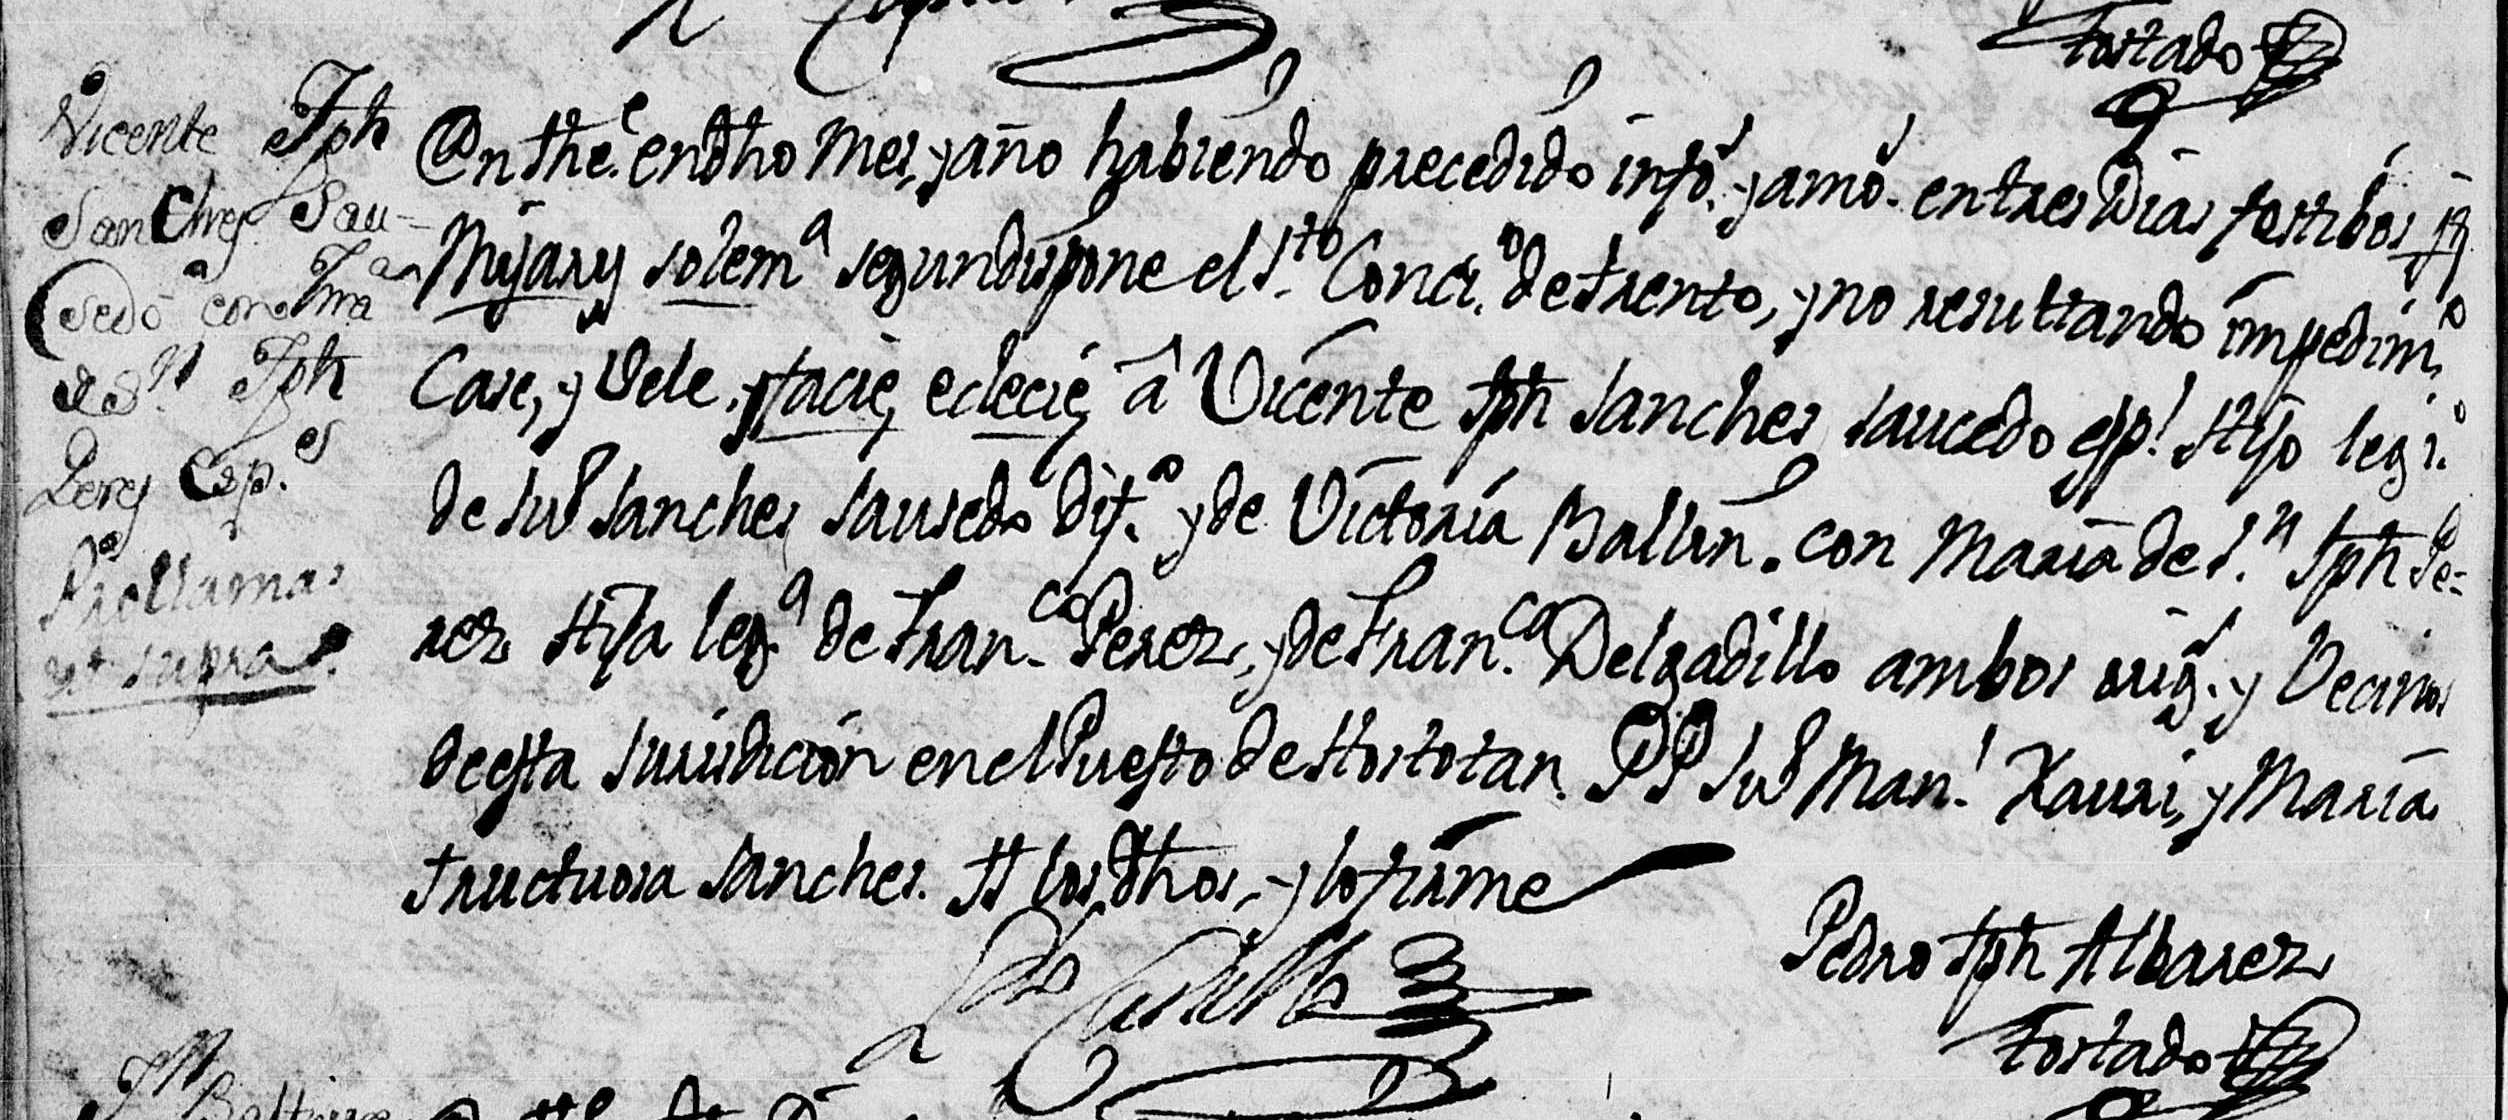 fortado
Vicente Jph
Sanches Sau-
sedo con Ma
de Sn Jph
Peres Esp.es
Proclamas
ut supra
En the.e en dho Mes, y año habiendo precedido info.s y amo.s en tres Dias festibos
Mysary solem.a segun dispone el S.to Conci.o de trento, y no resultando impedim.o
Case, y Vele, y facie eclecie â Vicente Jph Sanches Saucedo esp.l Hijo legi.o
de Jus Sanches Sausedo dif.o y de Victoria Ballin. con Maria de S.n Jph Pe-
rez Hija leg.a de Fran.co Perez, y de Fran.ca Delgadillo ambos orig.s y Vecinos
de esta Jurisdicion en el Puesto de Hortotan. PP Jus Man.l Xauri, y Maria
fructuosa Sanches. tt los dhos, y lo firme
Castillo
Pedro Jph Albarez
fortado